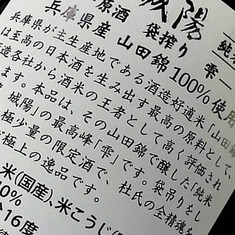 城陽
純米
原酒 袋搾り 雫
兵庫県産 山田錦100%使用
兵庫県が主生産地である酒造好適米「山田錦
は至高の日本酒を生み出す最高の原料として、
造各社から酒米の王者として高く評価され
ます。本品は、その山田錦で醸した「純米
城陽」の最高峰「雫」です。袋吊りをし
極少量の限定酒で、杜氏の全精魂を
極上の逸品です。
米(国産)、米こうじ(国
0%
16度